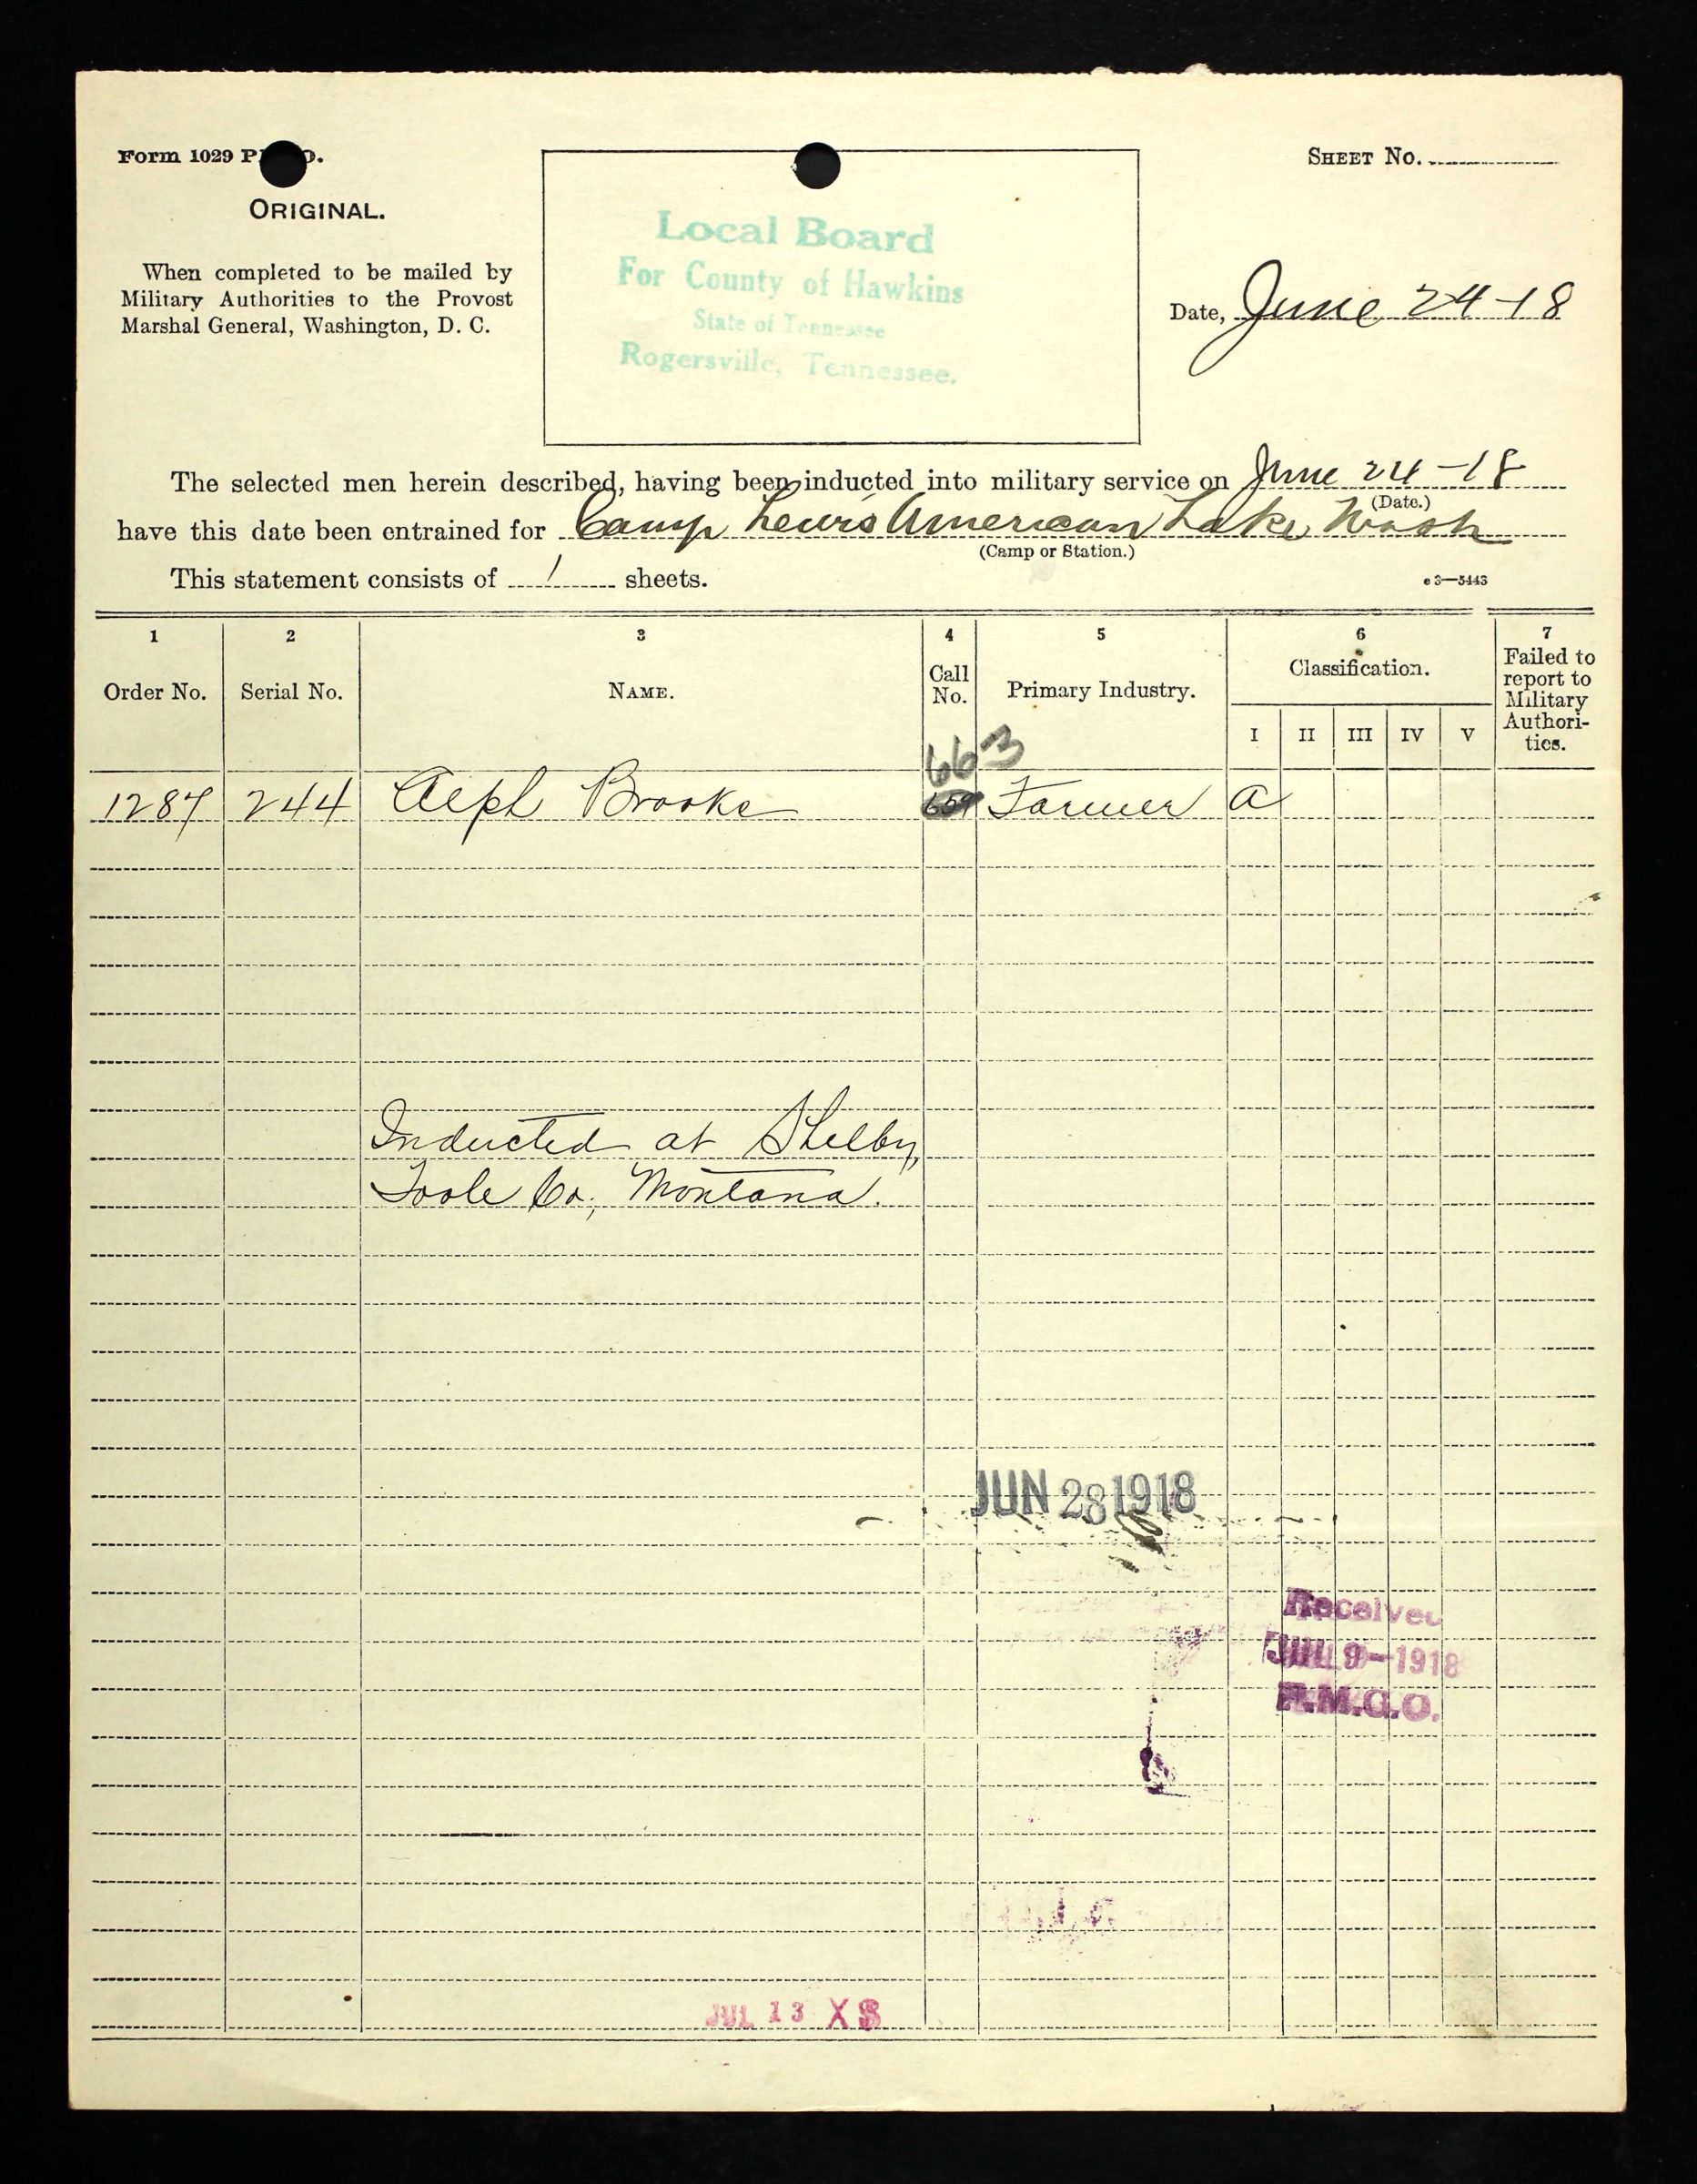 Form 1029 P
O.
SHEET No.
ORIGINAL.
When completed to be mailed by
Military Authorities to the Provost
Marshal General, Washington, D. C.
Local Board
For County of Hawkins
State of Tennessee
Rogersville, Tennessee.
Date, June 24-18
The selected men herein described, having been inducted into military service on June 24-18
(Date.)
have this date been entrained for Camp Lewis American Lake, Wash
(Camp or Station.)
This statement consists of 1 sheets.
e 3—5443
1 2 3 4 5 6 7
Order No. Serial No. NAME. Call No. Primary Industry. Classification. Failed to report to Military Authorities.
I II III IV V
663
1287 244 Brooke 659 Farmer a
Inducted at Shelby,
Toole Co., Montana.
JUN 28 1918
Received
JUL 9-1918
P.M.G.O.
JUL 13 X8